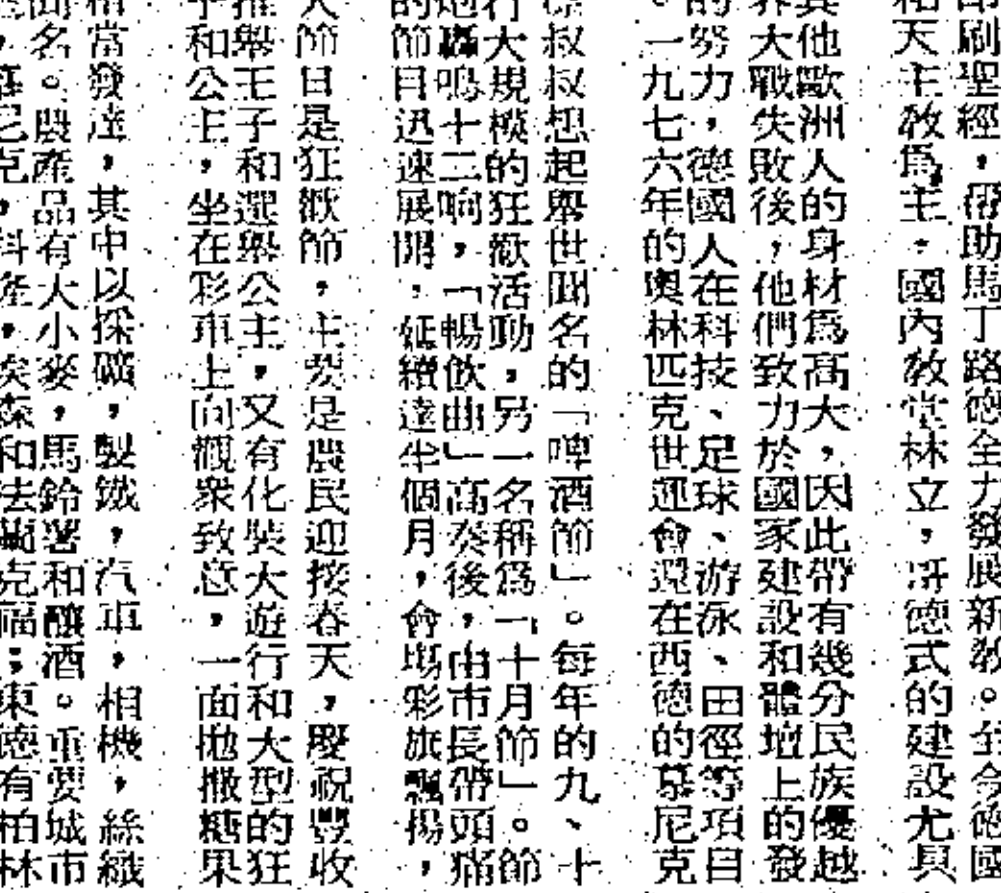 刷聖經，帮助馬丁路德全力發展新教。至今德國
和天主教爲主，國內教堂林立，哥德式的建設尤具
其他歐洲人的身材爲高大，因此帶有幾分民族優越
界大戰失敗後，他們致力於國家建設和體壇上的發
的努力，德國人在科技、足球、游泳、田徑等項目
。一九七六年的奧林匹克世運會還在西德的慕尼克
叔叔想起舉世聞名的「啤酒節」。每年的九、十
行大規模的狂歡活動，另一名稱爲「十月節」。節
炮轟鳴十二响，「暢飲曲」高奏後，由市長帶頭痛
的節目迅速展開，延續達半個月，會場彩旗飄揚，
大節日是狂歡節，主要是農民迎接春天，慶祝豐收
推舉王子和選舉公主，又有化裝大遊行和大型的狂
子和公主，坐在彩車上向觀衆致意，一面拋撒糖果
當發達，其中以採礦，製鐵，汽車，相機，絲織
名。農產品有大小麥，馬鈴薯和釀酒。重要城市
尼克，埃森和法蘭克福；東德有柏林